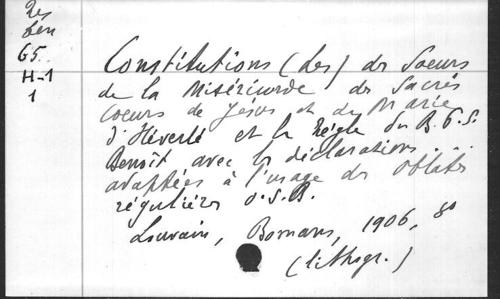 Res
ben
65
H-1
1
Constitutions (des) des Soeurs
de la Miséricorde des Sacrés
Coeurs de Jésus et de Marie
d'Héverlé et la Règle du B. P. S.
Benoît avec les déclarations...
adaptées à l'usage des Oblates
régulières O.S.B.
Louvain, Bomans, 1906, 8°
(lithogr.)